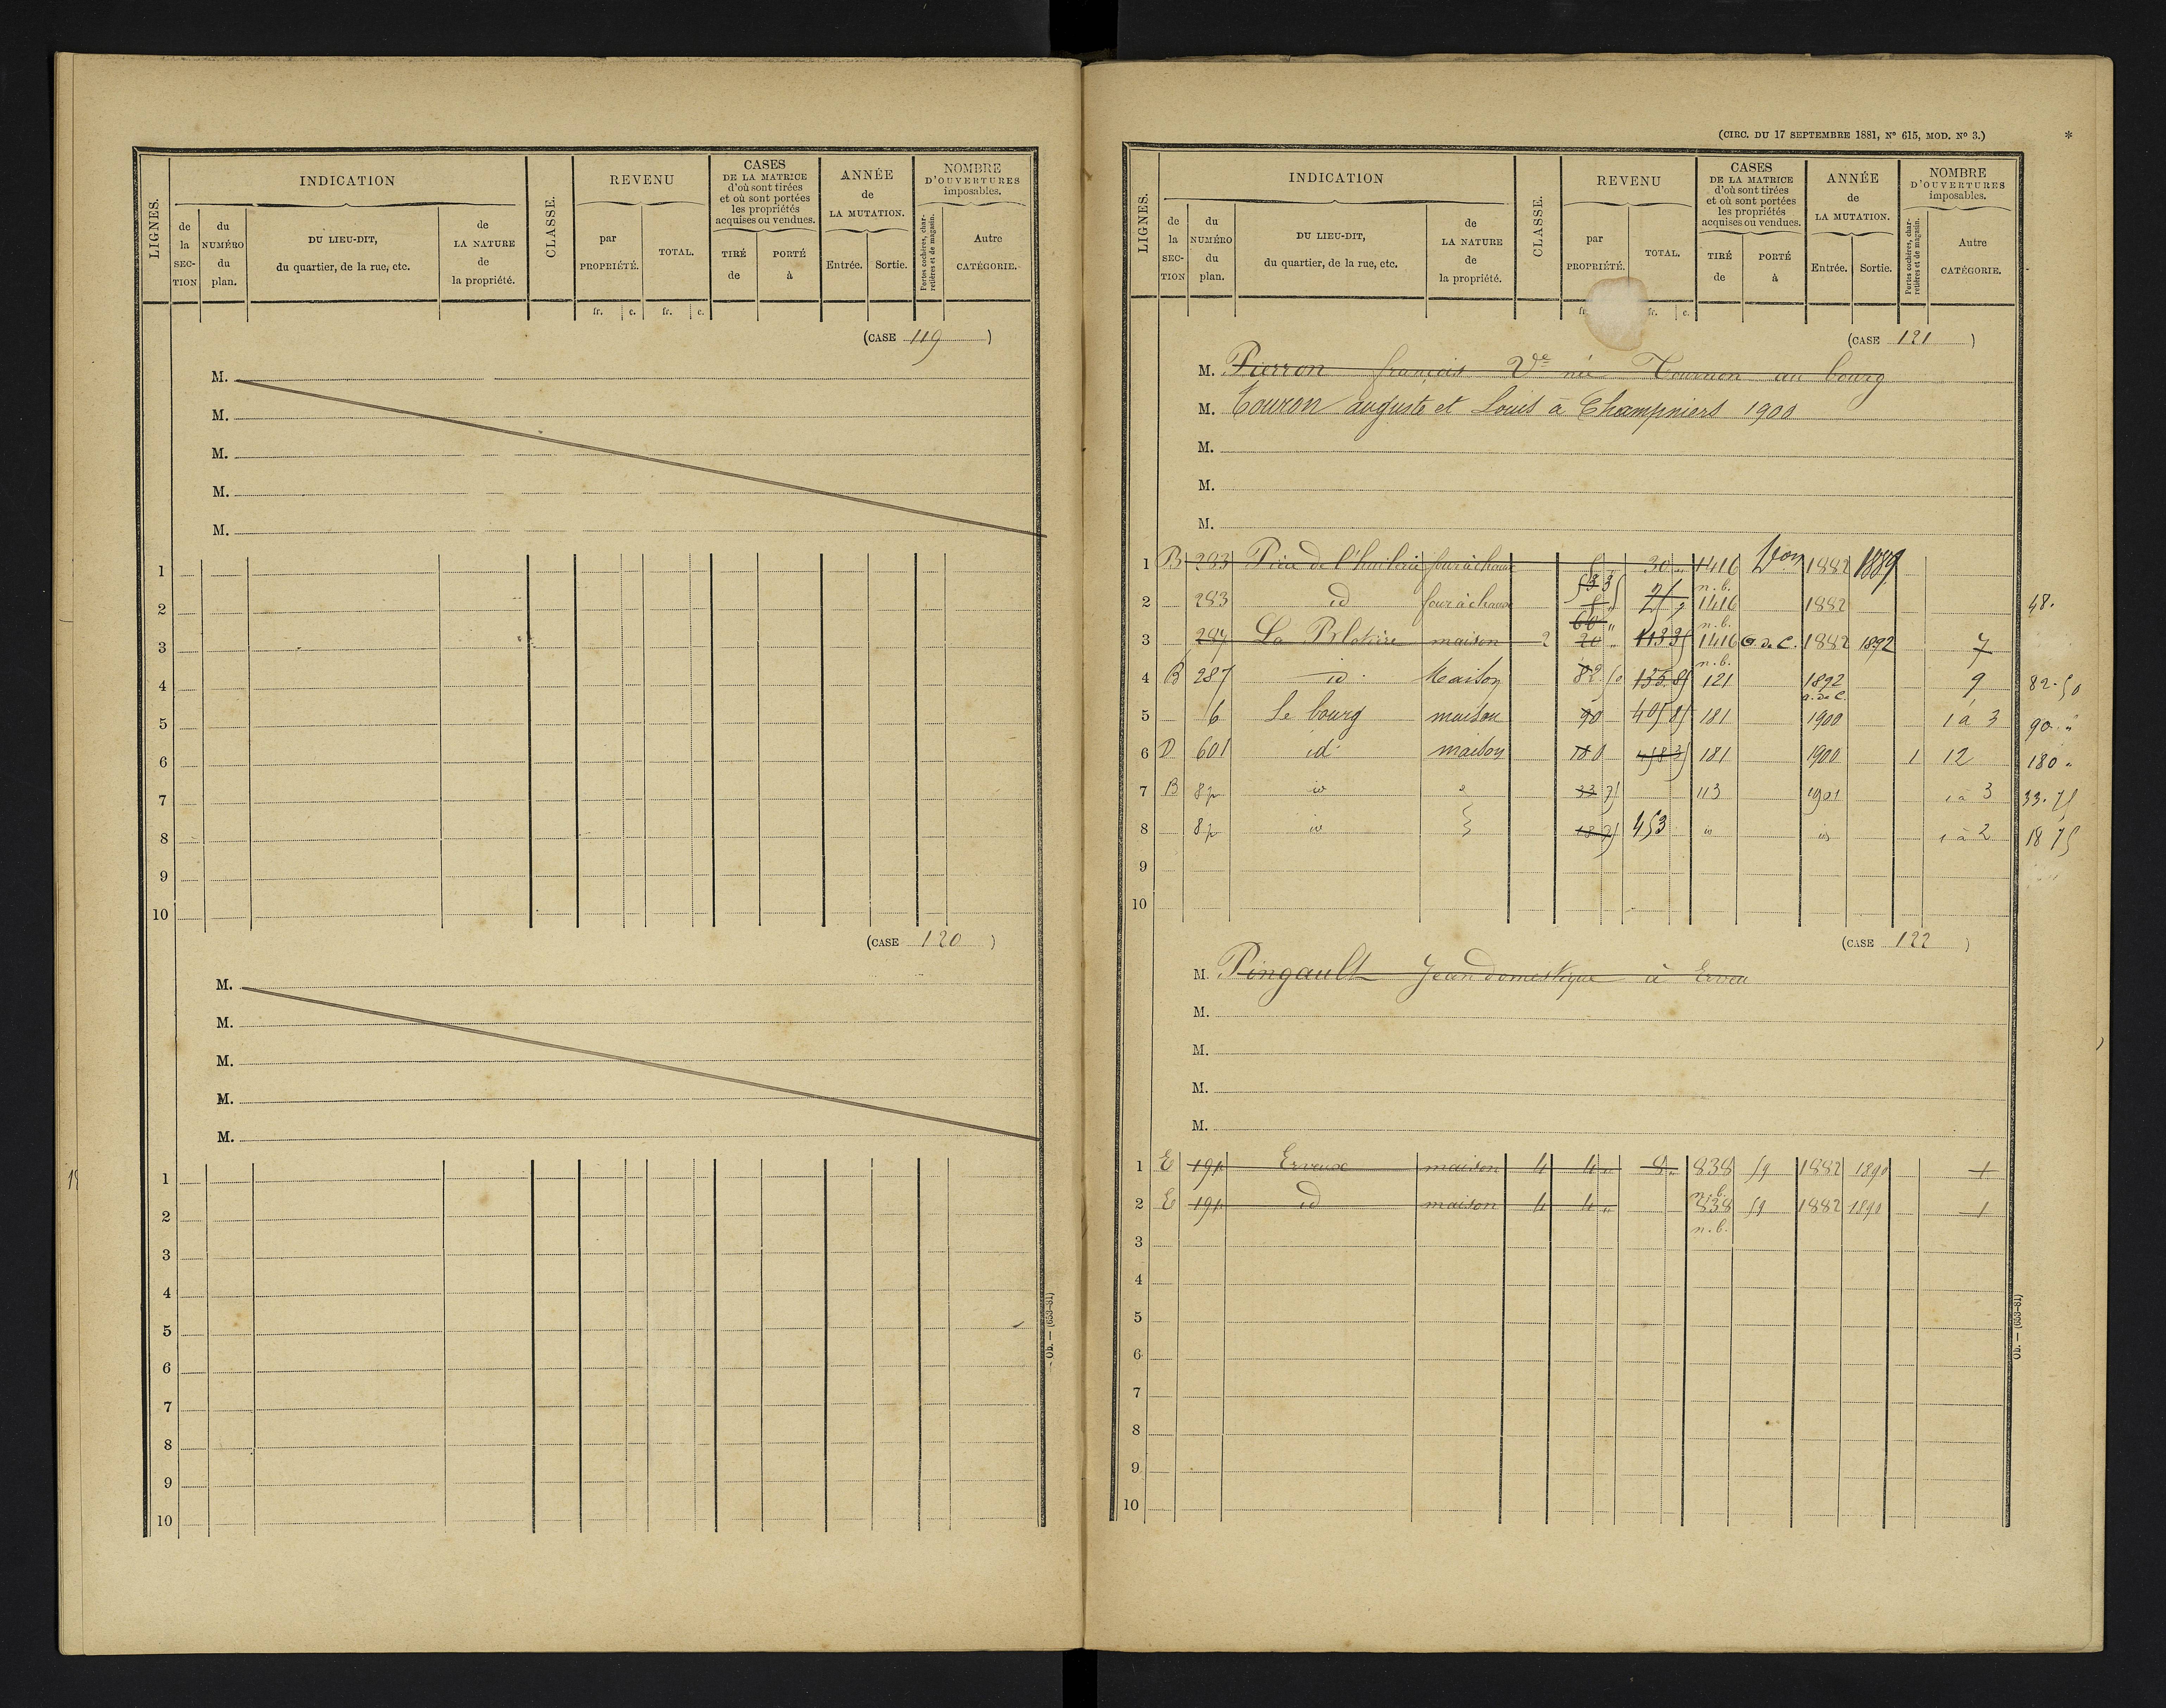 LIGNES.
INDICATION
de la SECTION
du NUMÉRO du plan.
DU LIEU-DIT, du quartier, de la rue, etc.
de LA NATURE de la propriété.
CLASSE.
REVENU
par PROPRIÉTÉ.
TOTAL.
CASES DE LA MATRICE d'où sont tirées et où sont portées les propriétés acquises ou vendues.
TIRÉ de
PORTÉ à
ANNÉE de LA MUTATION.
Entrée.
Sortie.
NOMBRE D'OUVERTURES imposables.
Portes cochères, charretières et de magasin.
Autre CATÉGORIE.
fr. c. fr. c.
(CASE 119)
M.
M.
M.
M.
M.
1
2
3
4
5
6
7
8
9
10
(CASE 120)
M.
M.
M.
M.
M.
1
2
3
4
5
6
7
8
9
10
Ob. — (653-81)
(CIRC. DU 17 SEPTEMBRE 1881, Nº 615, MOD. Nº 3.) *
LIGNES.
INDICATION
de la SECTION
du NUMÉRO du plan.
DU LIEU-DIT, du quartier, de la rue, etc.
de LA NATURE de la propriété.
CLASSE.
REVENU
par PROPRIÉTÉ.
TOTAL.
CASES DE LA MATRICE d'où sont tirées et où sont portées les propriétés acquises ou vendues.
TIRÉ de
PORTÉ à
ANNÉE de LA MUTATION.
Entrée.
Sortie.
NOMBRE D'OUVERTURES imposables.
Portes cochères, charretières et de magasin.
Autre CATÉGORIE.
fr. c.
(CASE 121)
M. Pierron françois Vve née Tournon au bourg
M. Couron auguste et Louis à Champniers 1900
M.
M.
M.
1 B 283 de l'huilerie four à chaux 30 1416 1882 1889
n.b.
2 283 id four à chaux 1416 1882 48.
60 n.b.
3 287 La maison 2 20 1416 G. de C. 1882 1892 7
n.b.
4 B 287 id. Maison 82.50 135.85 121 1892 9 82.50
a. de C.
5 6 Le bourg maison 90 405 85 181 1900 1 à 3 90. "
6 D 601 id. maison 180 181 1900 1 12 180 "
7 B 8p id 33 75 113 1901 1 à 3 33.75
8 8p id 18 75 453 id id 1 à 2 18 75
9
10
(CASE 122)
M. Pingault Jean domestique à Erveu
M.
M.
M.
M.
1 E 19p Erveux maison 4 4 " 8 " 838 59 1882 1890 1
n.b.
2 E 19p id maison 4 4 " 838 59 1882 1890 1
n.b.
3
4
5
6
7
8
9
10
Ob. — (653-81)